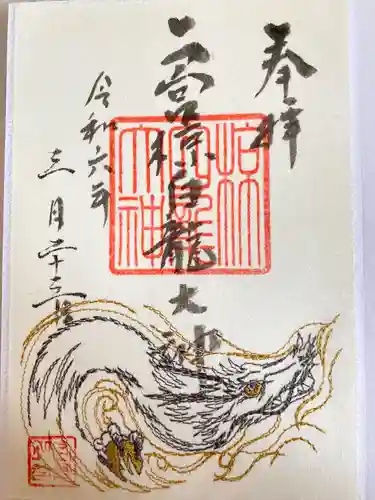 奉拝
二宮椋白龍大神
令和六年
三月二十三日
椋白龍大神